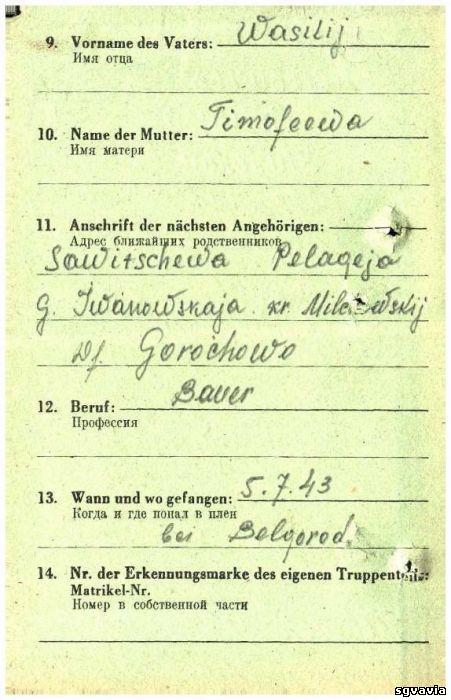 9. Vorname des Vaters: Wasilij
Имя отца
10. Name der Mutter: Timofeewa
Имя матери
11. Anschrift der nächsten Angehörigen:
Адрес ближайших родственников
Sawitschewa Pelageja
G. Iwanowskaja kr.
Df. Gorochowo
12. Beruf: Bauer
Профессия
13. Wann und wo gefangen: 5.7.43
Когда и где попал в плен
bei Belgorod.
14. Nr. der Erkennungsmarke des eigenen Truppenteils:
Matrikel-Nr.
Номер в собственной части
sgvavia